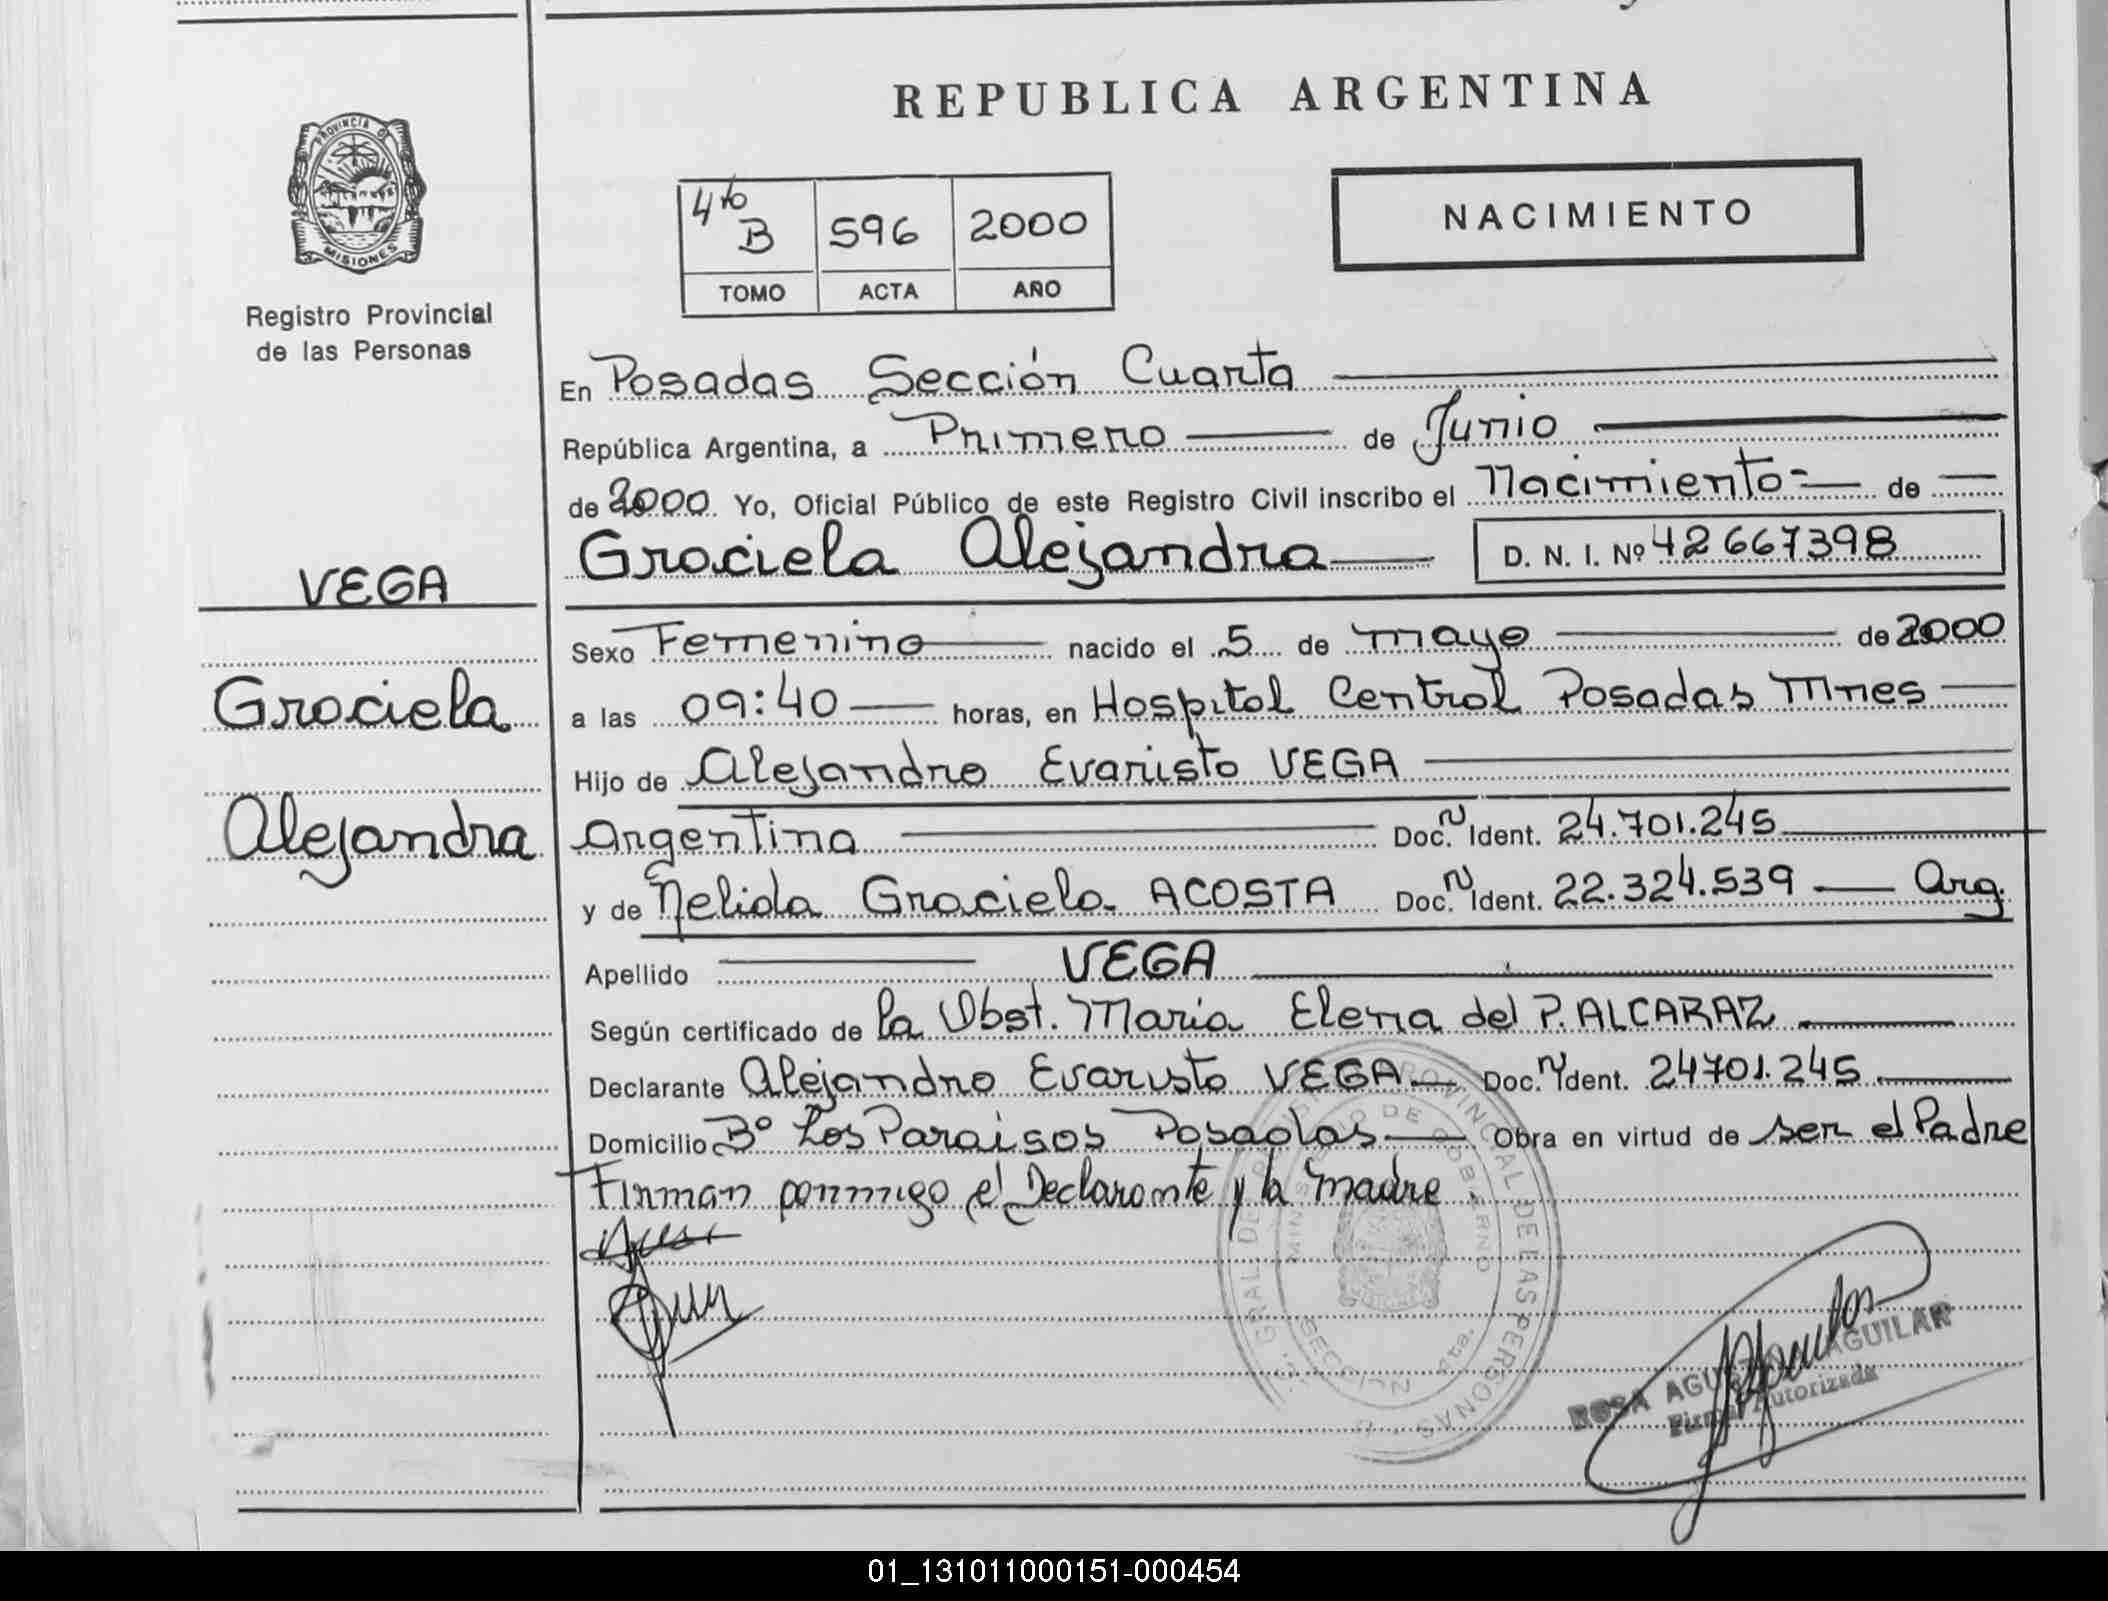 REPUBLICA ARGENTINA
PROVINCIA D
MISIONES
Registro Provincial
de las Personas
4to B 596 2000
TOMO ACTA AÑO
NACIMIENTO
En Posadas Sección Cuarta
República Argentina, a Primero de Junio
de 2000 Yo, Oficial Público de este Registro Civil inscribo el Nacimiento de
Graciela Alejandra D. N. I. Nº 42667398
VEGA
Graciela
Alejandra
Sexo Femenino nacido el 5 de mayo de 2000
a las 09:40 horas, en Hospital Central Posadas Mnes
Hijo de Alejandro Evaristo VEGA
Argentina Doc. N Ident. 24.701.245
y de Nelida Graciela ACOSTA Doc. N Ident. 22.324.539 Arg.
Apellido VEGA
Según certificado de la Obst. Maria Elena del P. ALCARAZ
Declarante Alejandro Evaristo VEGA Doc. N Ident. 24701.245
Domicilio Bº Los Paraisos Posadas Obra en virtud de ser el Padre
Firman conmigo el Declarante y la madre.
GRAL DE PROVINCIAL DE LAS PERSONAS
MINISTERIO DE GOBIERNO
SECCION 4ta.
ROSA AGUILAR
Firma Autorizada
01_131011000151-000454